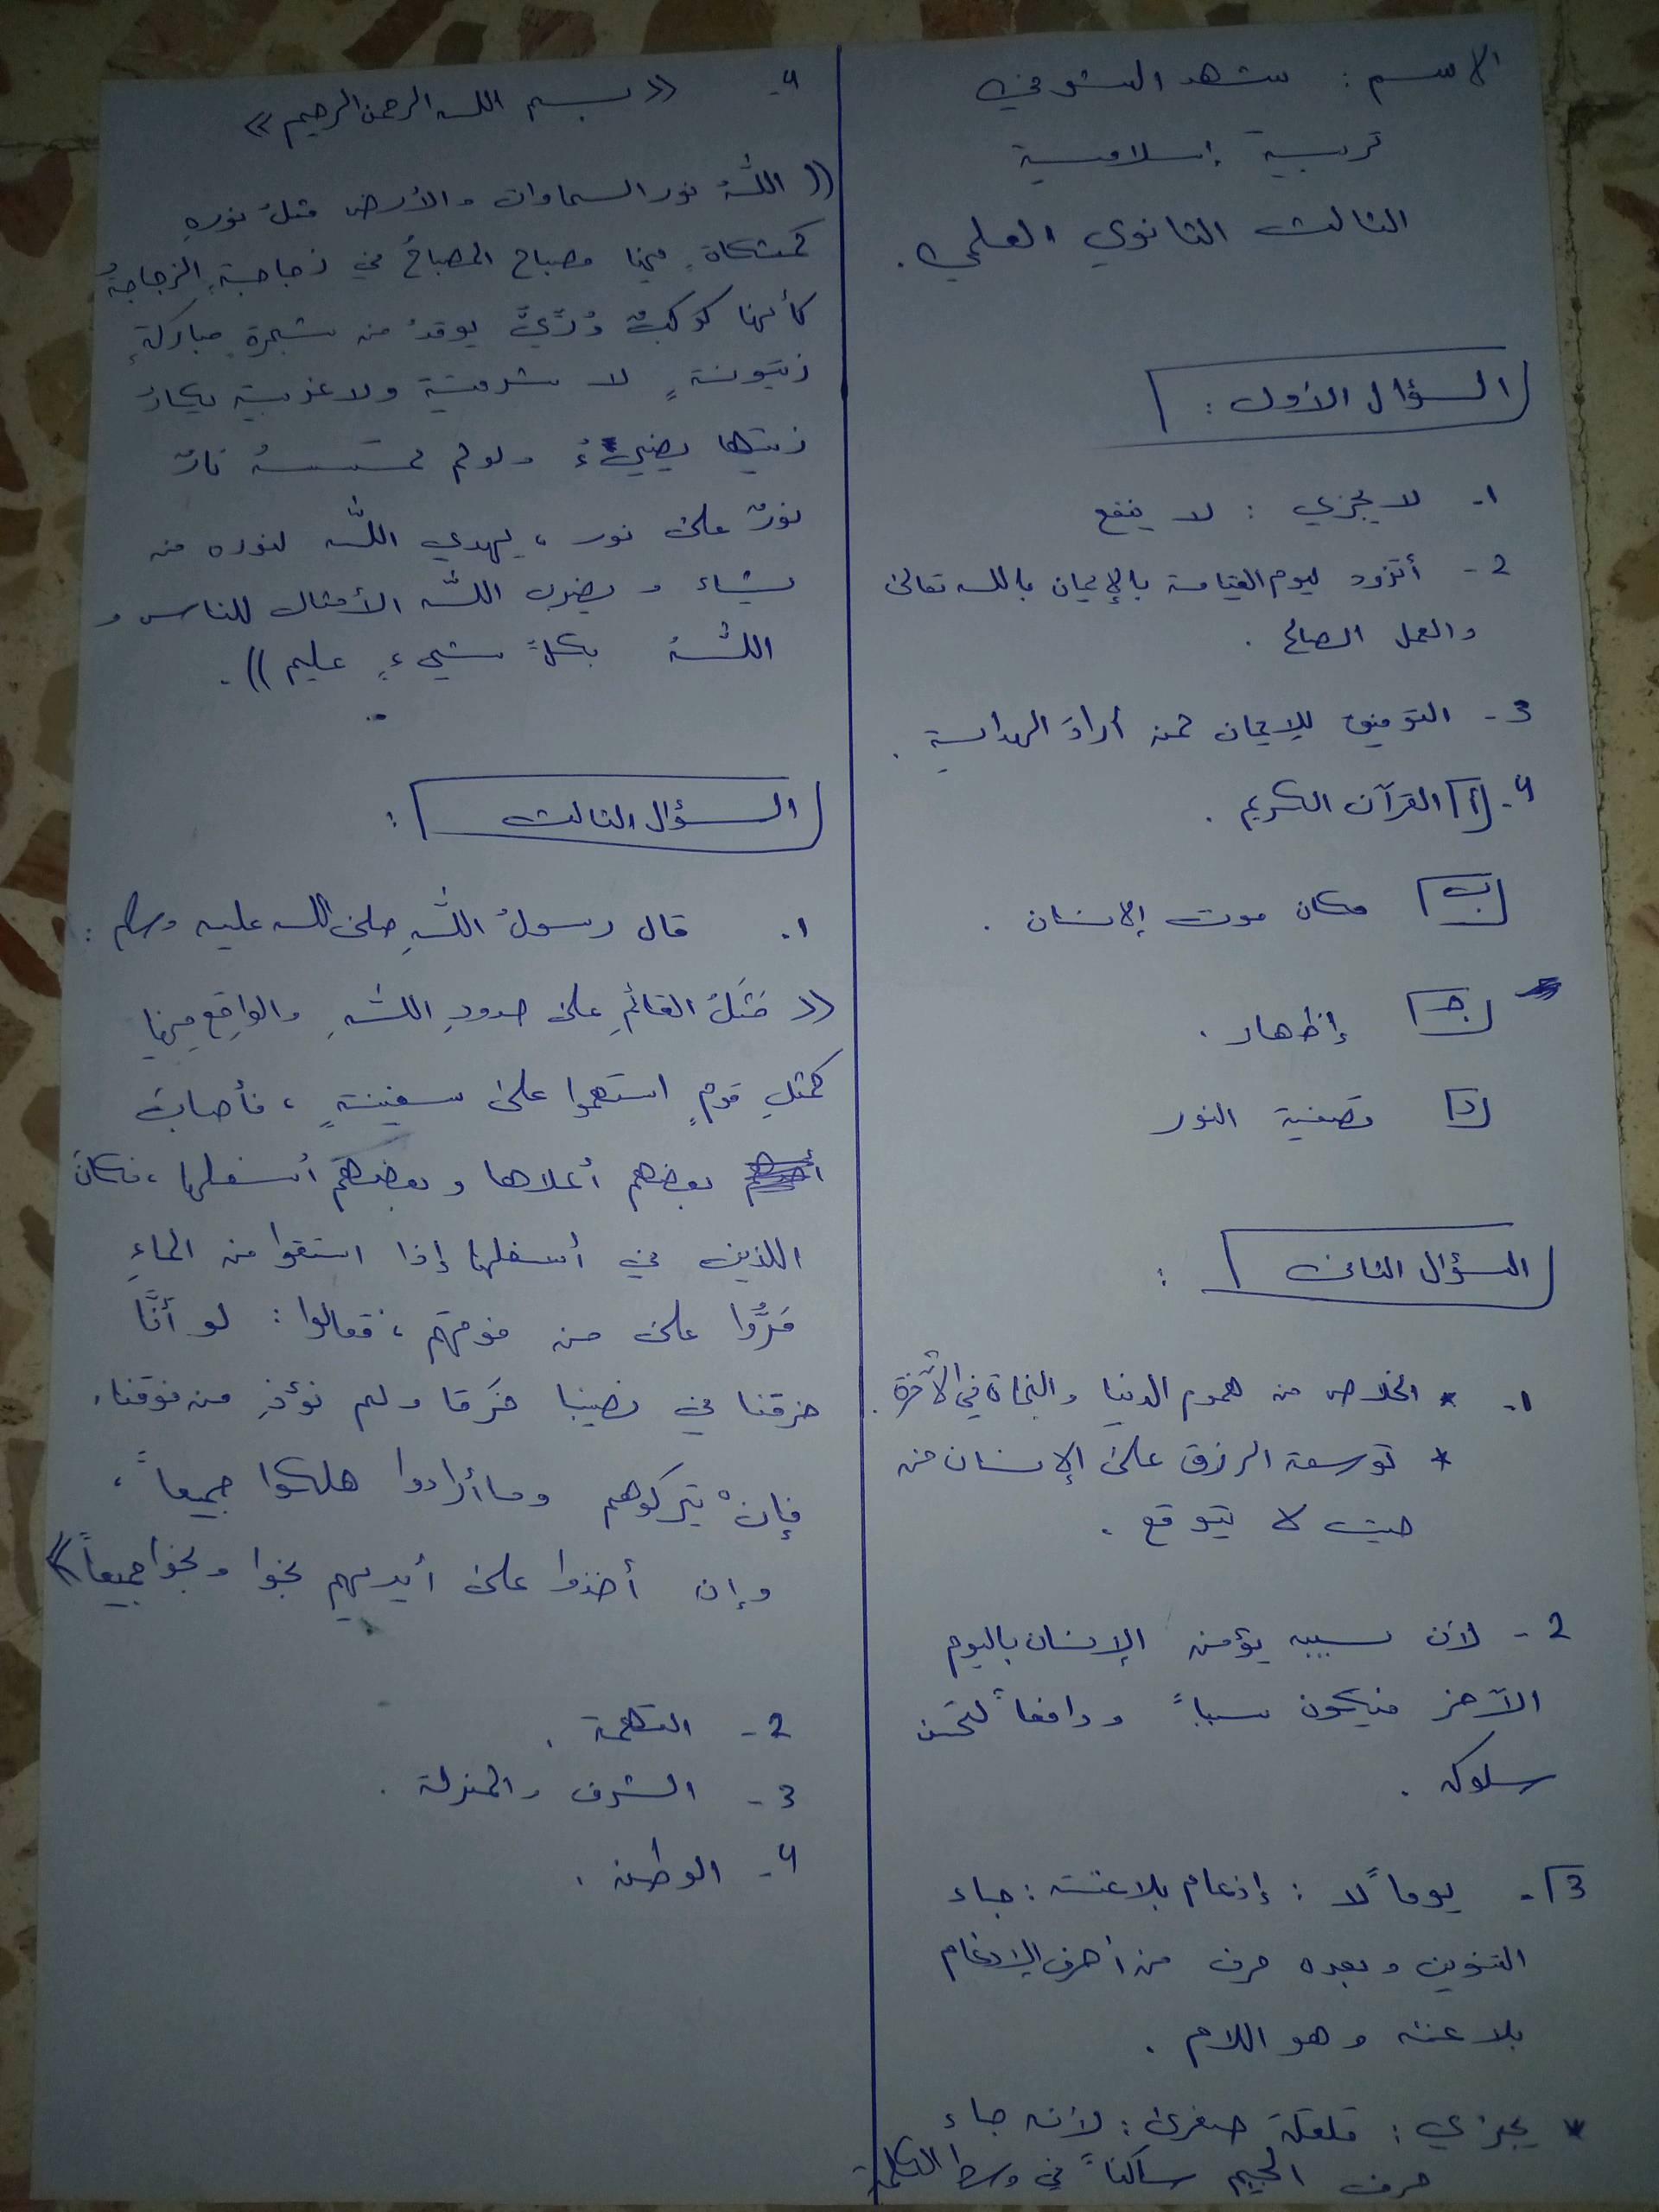 الاسم : شهد الشوفي
تربية إسلامية
الثالث الثانوي العلمي .
السؤال الأول :
1- لا يجزي : لا ينفع
2- أتزود ليوم القيامة بالإيمان بالله تعالى
والعمل الصالح .
3- التوفيق للإيمان لمن أراد الهداية .
4- أ القرآن الكريم .
ب مكان موت الإنسان .
جـ إظهار .
د تصفية النور
السؤال الثاني :
1- * الخلاص من هموم الدنيا والنجاة في الآخرة .
* توسعة الرزق على الإنسان من
حيث لا يتوقع .
2- لأن بسببه يؤمن الإنسان باليوم
الآخر فيكون سبباً ودافعاً لتحسن
سلوكه .
3- يوماً لا : إدغام بلا غنة : جاء
التنوين وبعده حرف من أحرف الإدغام
بلا غنة وهو اللام .
* يجزي : قلقلة صغرى : لأنه جاء
حرف الجيم ساكناً في وسط الكلمة
4- « بسم الله الرحمن الرحيم »
(( اللّهُ نور السماوات والأرض مثلُ نورهِ
كمشكاةٍ فيها مصباح المصباحُ في زجاجةٍ الزجاجةُ
كأنها كوكبٌ دُرّيٌّ يوقدُ من شجرةٍ مباركةٍ
زيتونةٍ لا شرقية ولا غربية يكادُ
زيتها يضيءُ ولو لم تمسسهُ نارٌ
نورٌ على نور ، يهدي اللّه لنوره من
يشاء ويضرب اللّه الأمثال للناس و
اللّهُ بكلّ شيءٍ عليم )) .
السؤال الثالث :
1. قال رسولُ اللّهِ صلى الله عليه وسلم :
(( مَثَلُ القائمِ على حدودِ اللّهِ والواقِعِ فيها
كمثلِ قومٍ استهموا على سفينةٍ ، فأصابَ
بعضهم أعلاها وبعضهم أسفلها ، فكانَ
اللذين في أسفلها إذا استقوا من الماءِ
مَرُّوا على من فوقهم ، فقالوا : لو أنَّا
خرقنا في نصيبنا خَرقا ولم نؤذِ من فوقنا ،
فإنْ يتركوهم وما أرادوا هلكوا جميعاً ،
وإن أخذوا على أيديهم نجوا ونجوا جميعاً ))
2- التهلكة .
3- الشرف والمنزلة .
4- الوطن .